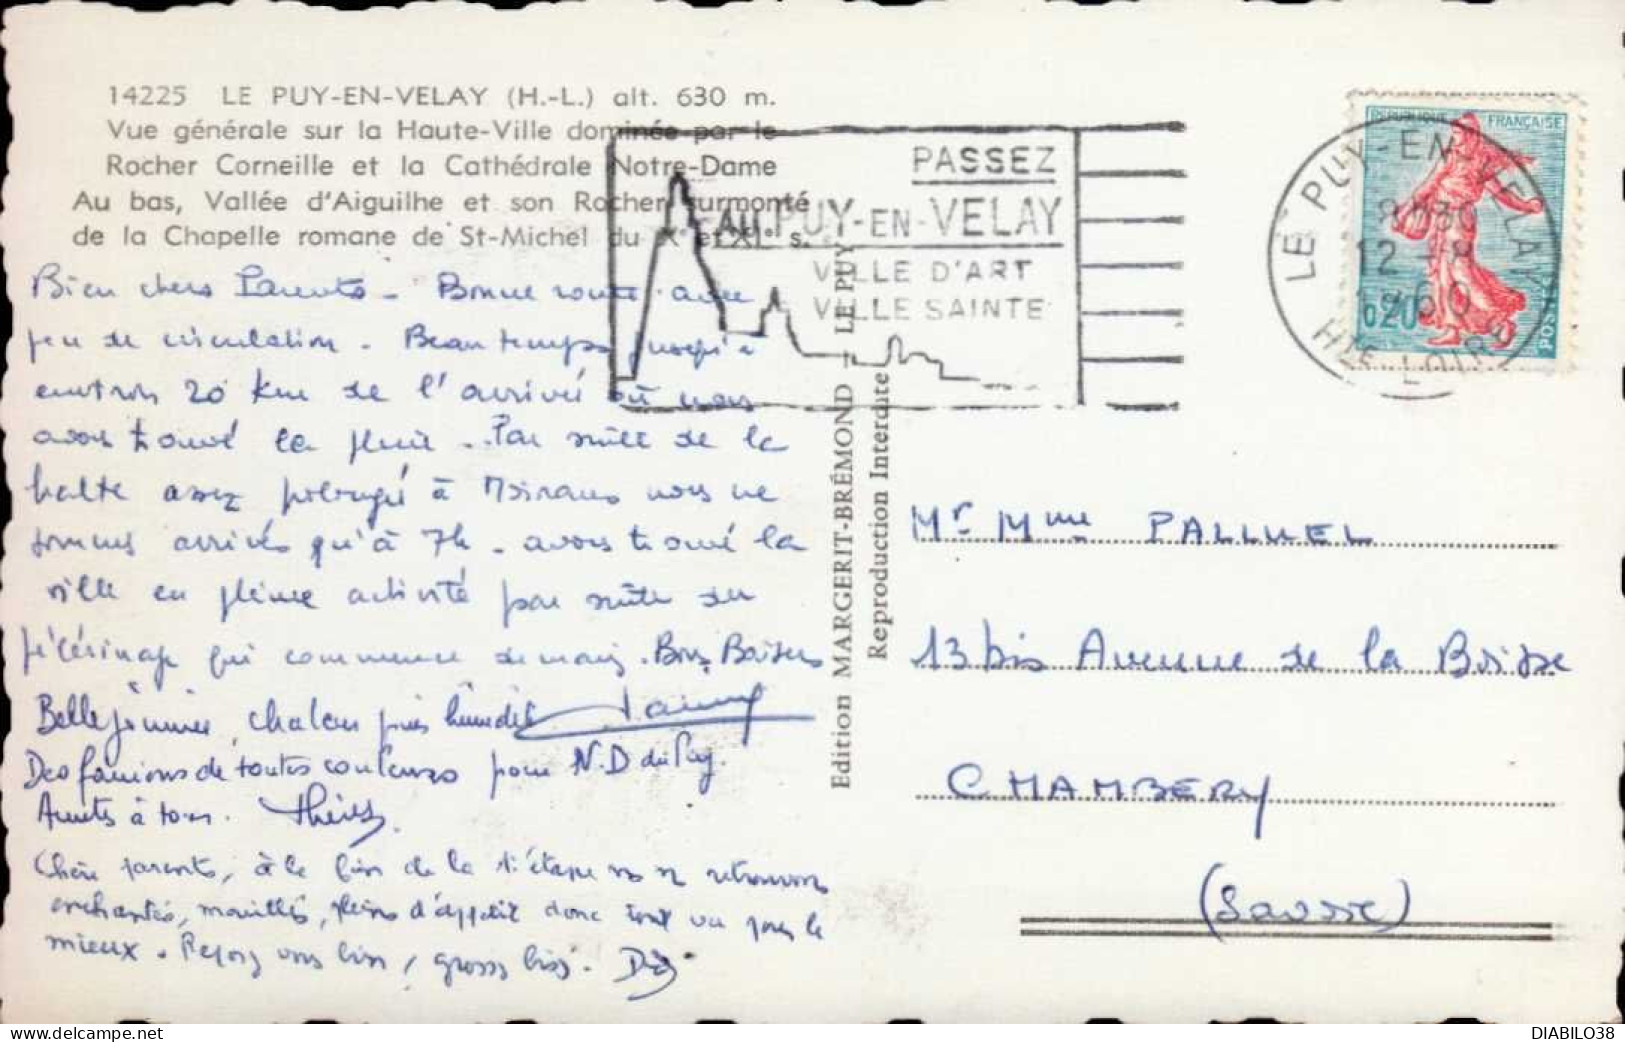 14225 LE PUY-EN-VELAY (H.-L.) alt. 630 m.
Vue générale sur la Haute-Ville dominée par le
Rocher Corneille et la Cathédrale Notre-Dame
Au bas, Vallée d'Aiguilhe et son Rocher surmonté
de la Chapelle romane de St-Michel du Xe et XIe s.
Bien chers Parents - Bonne route avec
peu de circulation - Beau temps jusqu'à
environ 20 km de l'arrivée où nous
avons trouvé la pluie - Par suite de la
halte assez prolongée à Moirans nous ne
sommes arrivés qu'à 7h - avons trouvé la
ville en pleine activité par suite du
pélérinage qui commence demain. Bons Baisers
Belle journée, chaleur puis humidité
Des fanions de toutes couleurs pour N.D du Puy.
Amitiés à tous.
Chers parents, à la fin de la 1° étape ns ns retrouvons
enchantés, mouillés, pleins d'appétit donc tout va pour le
mieux. Reposez vous bien, grosses bises.
Edition MARGERIT-BRÉMOND — LE PUY
Reproduction Interdite
PASSEZ
AU PUY-EN-VELAY
VILLE D'ART
VILLE SAINTE
REPUBLIQUE FRANÇAISE
0,20
POSTES
LE PUY-EN-VELAY
12-8
1960
HTE LOIRE
Mr Mme PALLUEL
13 bis Avenue de la Boisse
CHAMBERY
(Savoie)
DIABILO38